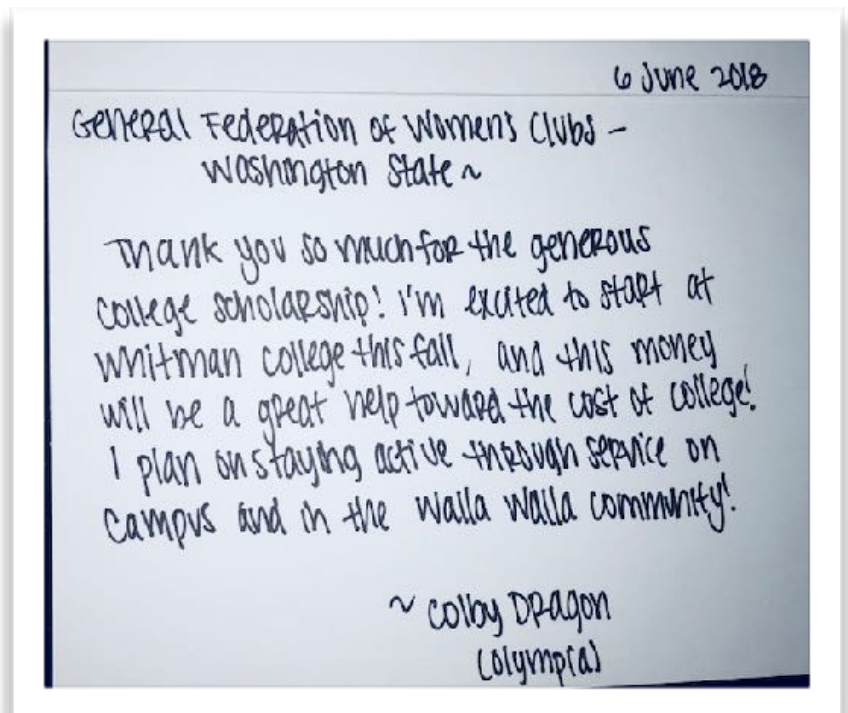 6 June 2018
General Federation of Women's Clubs –
Washington State ~
Thank you so much for the generous
college scholarship! I'm excited to start at
Whitman College this fall, and this money
will be a great help toward the cost of college!
I plan on staying active through service on
campus and in the Walla Walla community!
~ Colby Dragon
(Olympia)